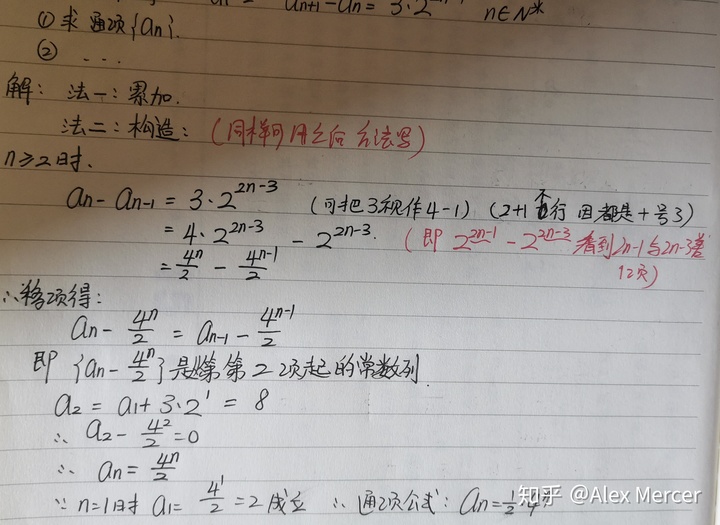 an+1-an= 3·2 n∈N*
① 求通项{an}.
② ...
解: 法一: 累加.
法二: 构造: (同样可用之后方法写)
n≥2时.
an-an-1 = 3·2^{2n-3} (可把3视作4-1) (2+1不行 因都是+号3)
= 4·2^{2n-3} - 2^{2n-3}. (即 2^{2n-1} - 2^{2n-3} 看到2n-1与2n-3差
= 4^n/2 - 4^{n-1}/2 1项)
∴移项得:
an - 4^n/2 = an-1 - 4^{n-1}/2
即 {an - 4^n/2} 是第2项起的常数列.
a2 = a1+3·2^1 = 8
∴ a2 - 4^2/2 = 0
∴ an = 4^n/2
∵ n=1时 a1= 4^1/2 = 2 成立 ∴ 通项公式: an=1/2·4^n
知乎 @Alex Mercer